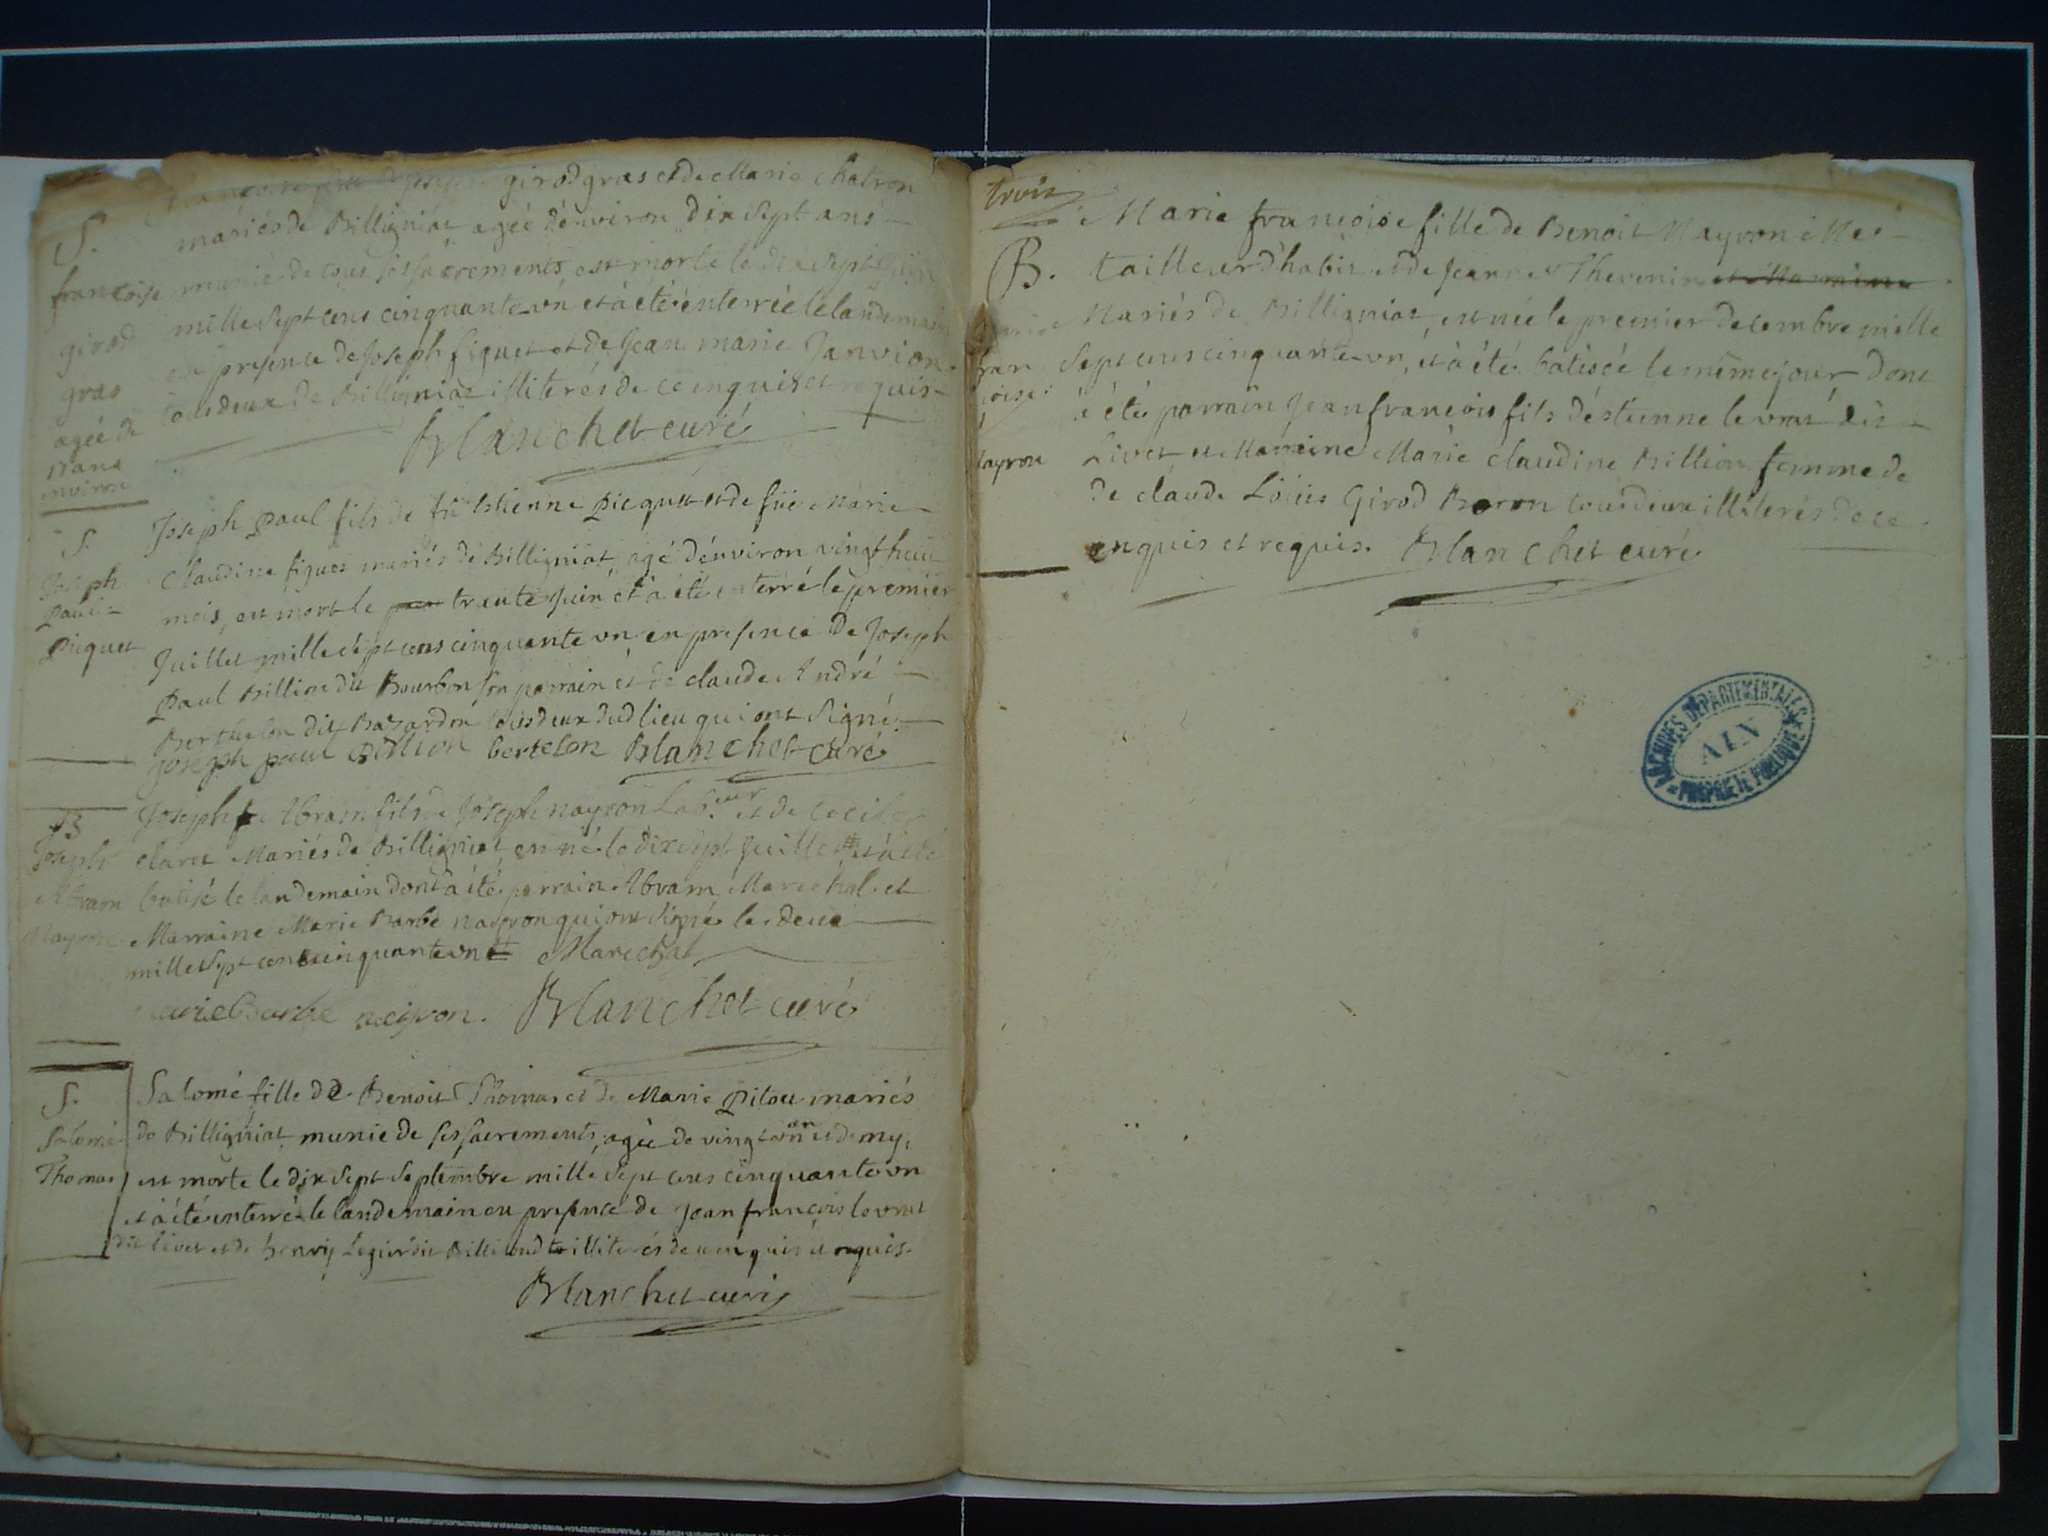 girod gras et de Marie Chatron
S. mariés de Billigniat agée dénviron dix sept ans
françoise munie de tous ses sacrements est morte le dix sept
girod mille sept cens cinquante un et à été énterrée le landemain
gras en presence de Joseph figuet et de Jean marie Janvion
agée de tous deux de Billigniat illiterés de ce enquis et requis
17 ans
environ
Blanchet curé
S. Joseph paul fils de fû Estienne Picquet et de fûe Marie
Joseph Claudine figuet mariés de Billigniat, agé dénviron vingt huit
Paul mois, est mort le trente Juin et à été enterré le premier
Picquet Juillet mille sept cens cinquante un en presence de Joseph
Paul Billion dit Bourbon son parrain et de claude André
Berthelon dit Bazardon tous deux dud lieu qui ont signé
Joseph paul Billion bertelon Blanchet curé
B Joseph Abram fils de Joseph nayron Lab.eur et de Cecile
Joseph claret Mariés de Billigniat est né le dix sept Juillet # et à été
Abram batisé le landemain dont à été parrain Abram Marechal et
Nayron Marraine Marie Barbe nayron qui ont signé les deux
mille sept cens cinquante un # Marechal
marie Barbe neyron. Blanchet curé
S. Salomé fille de Benoit Thomas et de Marie Pitou mariés
Salomé de Billigniat, munie de ses sacrements, agée de vingt un an et demy,
Thomas est morte le dix sept septembre mille sept cens cinquante un
et à été enterré le landemain en presence de Jean françois le vrat
dit livet et de henry Legier dit Billiond illiterés de ce enquis et requis.
Blanchet curé
trois
Marie françoise fille de Benoit Nayron Me
B. tailleur d'habit et de Jeanne Thevenin et Marraine
Marie Mariés de Billigniat, est née le premier decembre mille
fran sept cens cinquante un, et à été batisée le même jour dont
çoise à été parrain Jean françois fils d'éstienne le vrat dit
Nayron Livet et Marraine Marie Claudine Billion femme de
de claude Loüis Girod Baron tous deux illiterés de ce
enquis et requis. Blanchet curé
ARCHIVES DÉPARTEMENTALES
AIN
PROPRIÉTÉ PUBLIQUE